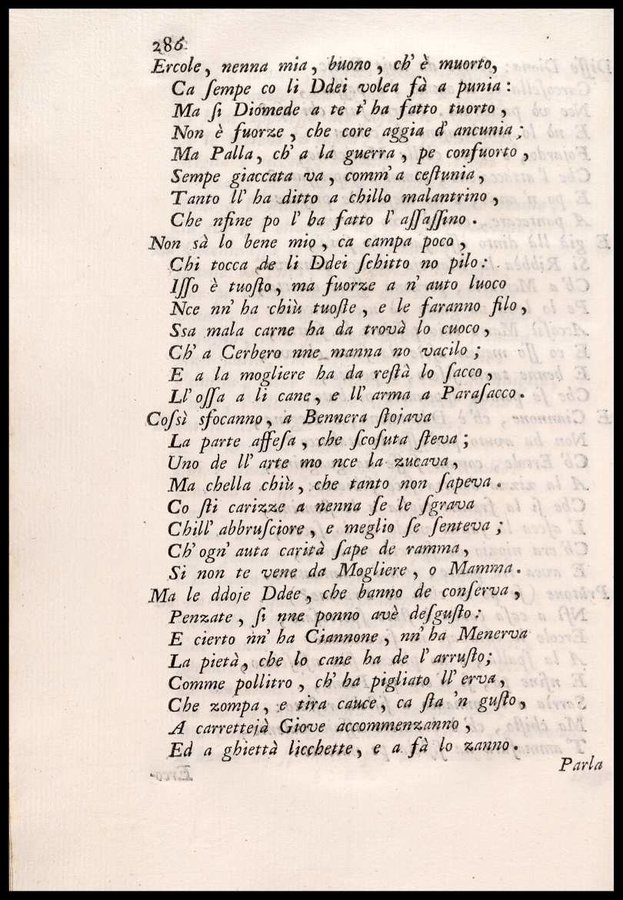 286
Ercole, nenna mia, buono, ch' è muorto,
Ca ſempe co li Ddei volea fà a punia:
Ma ſi Diomede a te t' ha fatto tuorto,
Non è fuorze, che core aggia d' ancunia;
Ma Palla, ch' a la guerra, pe confuorto,
Sempe giaccata va, comm' a ceſtunia,
Tanto ll' ha ditto a chillo malantrino,
Che nfine po l' ha fatto l' aſſaſſino.
Non sà lo bene mio, ca campa poco,
Chi tocca de li Ddei ſchitto no pilo:
Iſſo è tuoſto, ma fuorze a n' auto luoco
Nce nn' ha chiù tuoſte, e le faranno filo,
Ssa mala carne ha da trovà lo cuoco,
Ch' a Cerbero nne manna no vacilo;
E a la mogliere ha da reſtà lo ſacco,
Ll' oſſa a li cane, e ll' arma a Paraſacco.
Coſsì sfocanno, a Bennera ſtojava
La parte affeſa, che ſcoſuta ſteva;
Uno de ll' arte mo nce la zucava,
Ma chella chiù, che tanto non ſapeva.
Co ſti carizze a nenna ſe le sgrava
Chill' abbruſciore, e meglio ſe ſenteva;
Ch' ogn' auta carità ſape de ramma,
Si non te vene da Mogliere, o Mamma.
Ma le ddoje Ddee, che hanno de conſerva,
Penzate, ſi nne ponno avè deſguſto:
E cierto nn' ha Ciannone, nn' ha Menerva
La pietà, che lo cane ha de l' arruſto;
Comme pollitro, ch' ha pigliato ll' erva,
Che zompa, e tira cauce, ca ſta 'n guſto,
A carrettejà Giove accommenzanno,
Ed a ghiettà licchette, e a fà lo zanno.
Parla